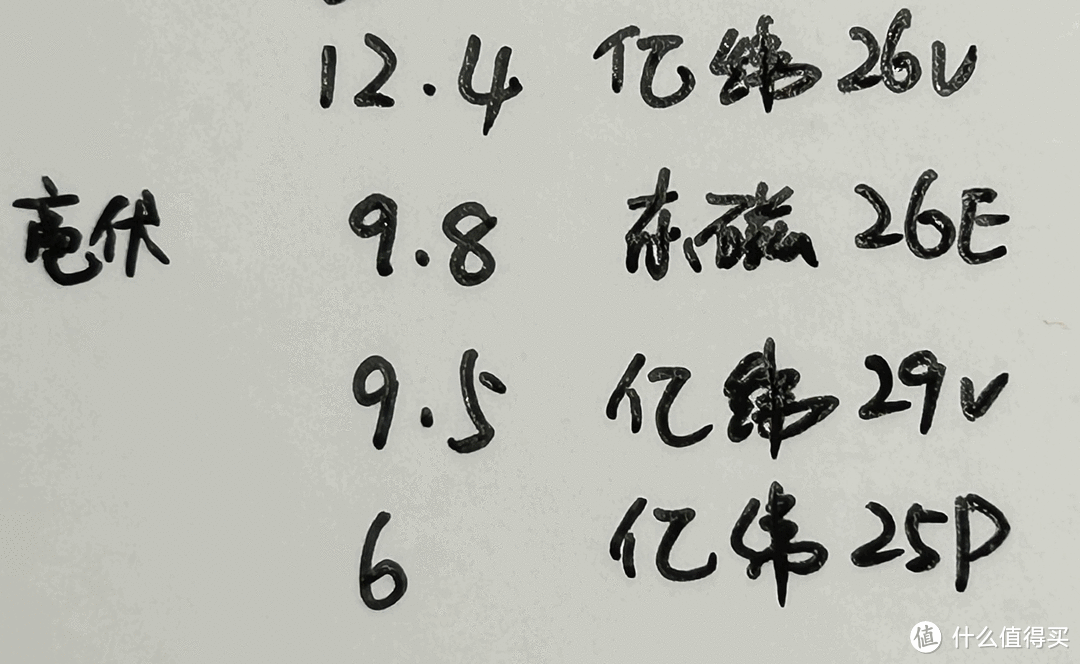 12.4 亿纬 26V
亳伏 9.8 东磁 26E
9.5 亿纬 29V
6 亿纬 25P
值 什么值得买